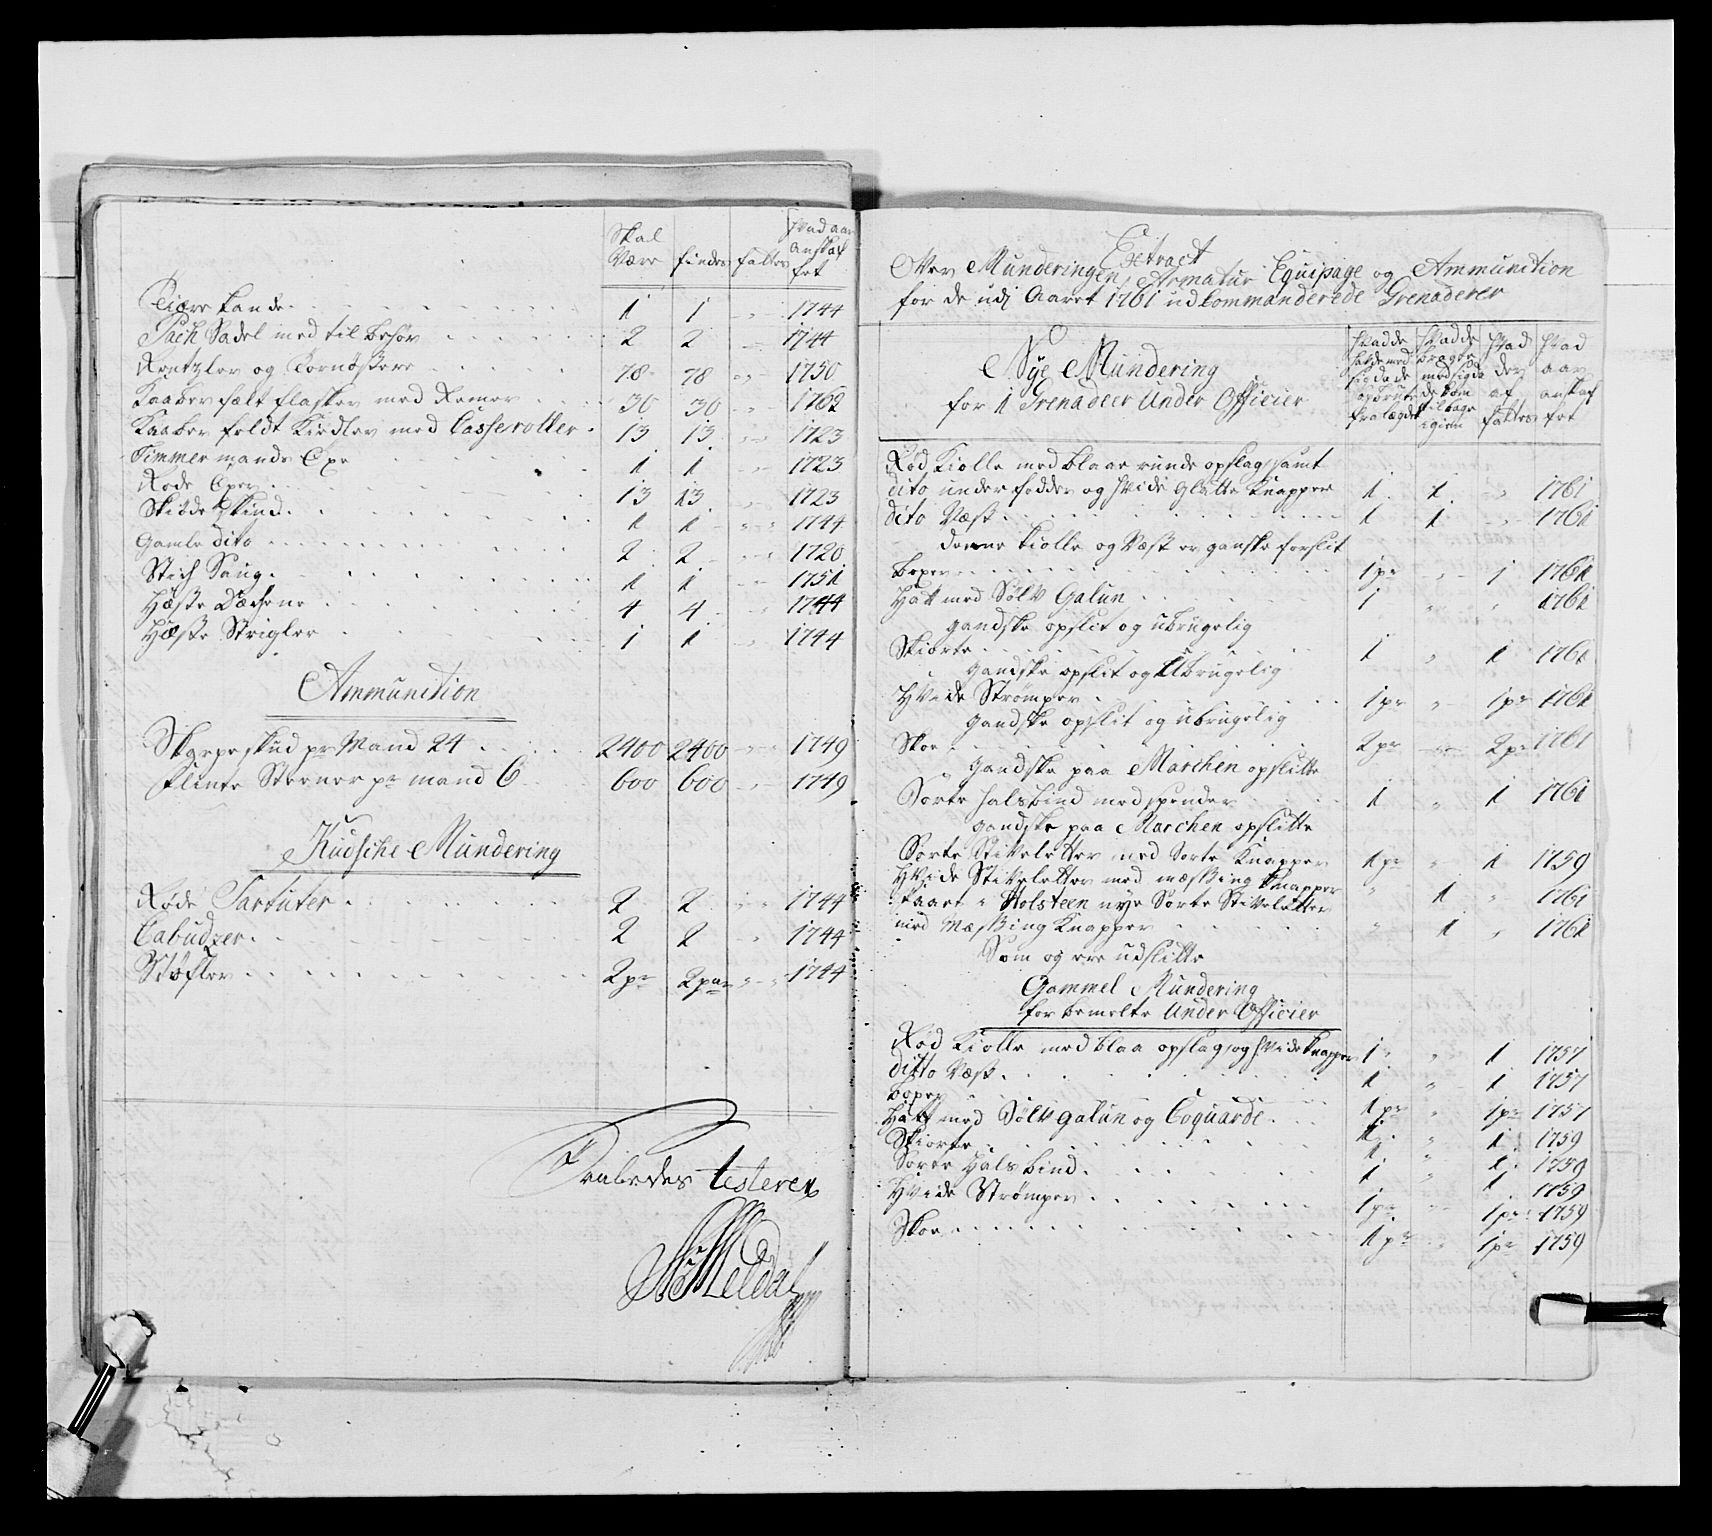 Skal Være findes fattes Hvad aar anskaffet
Tiære Lande 1 1 " 1744
Pach Sadel med tilbehør 2 2 " 1744
Rentzler og Tornøstere 78 78 " 1750
Kaaber fælt flasker med Remer 30 30 " 1762
Kaaber feldt Kiedler med Casseroller 13 13 " 1723
Timmermands Exe 1 1 " 1723
Rode Exer 13 13 " 1723
Skiøde Skind 1 1 " 1744
Gamle dito 2 2 " 1720
Stich Saug 1 1 " 1751
Hæste Dækene 4 4 " 1744
Hæste Strigler 1 1 " 1744
Ammunition
Skarpe skud pr Mand 24 2400 2400 " 1749
Flinte Steener pr mand 6 600 600 " 1749
Kudsche Mundering
Røde Sartuter 2 2 " 1744
Cabudzer 2 2 " 1744
Støfler 2 pr 2 par " 1744
testerer
Extract
Over Munderingen, Armatur Equipage og Ammunition
for de udj Aaret 1761 udcommanderede Grenaderer
Nÿe Mundering
for 1 Grenadeer Under Officier
Hvad der af fattes
Hvad aar anskaffet
Rød Kiolle med blaae runde opslag, samt
dito underfodder og hvide glatte Knapper 1 1 " 1761
dito Væst 1 1 " 1761
denne kiolle og Væst er ganske forslit
boxer 1 pr " 1 1761
Hat med Sølv Galun 1 " " 1761
gandske opslit og ubrugelig
Skiorte 1 " 1 1761
Gandske opslit og Ubrugelig
Hvide Strømper 1 pr " 1 pr 1761
Gandske opslit og ubrugelig
Skoe 2 pr " 2 pr 1761
Gandske paa Marchen opslitte
Sorte halsbind med spender 1 " 1 1761
gandske paa Marchen opslitte
Sorte Stiveletter med Sorte Knapper 1 pr " 1 1759
Hvide Stiveletter med mæssing Knapper " 1 " 1761
faaet i Holsteen nye Sorte Stiveletter
med Mæssing Knapper " 1 " 1761
Som og ere udslitte
Gammel Mundering
for bemelte Under Officier
Rød Kiolle med blaa opslag, og hvide knapper 1 " 1 1757
ditto Væst 1 " 1 1757
boxer 1 pr " 1 pr 1757
Hatt med Sølv galun og Coquarde 1 " 1 1759
Skiorte 1 " 1 1759
Sorte Hals bind 1 " 1 1759
Hvide Strømper 1 pr " 1 pr 1759
Skoe 1 pr " 1 pr 1759